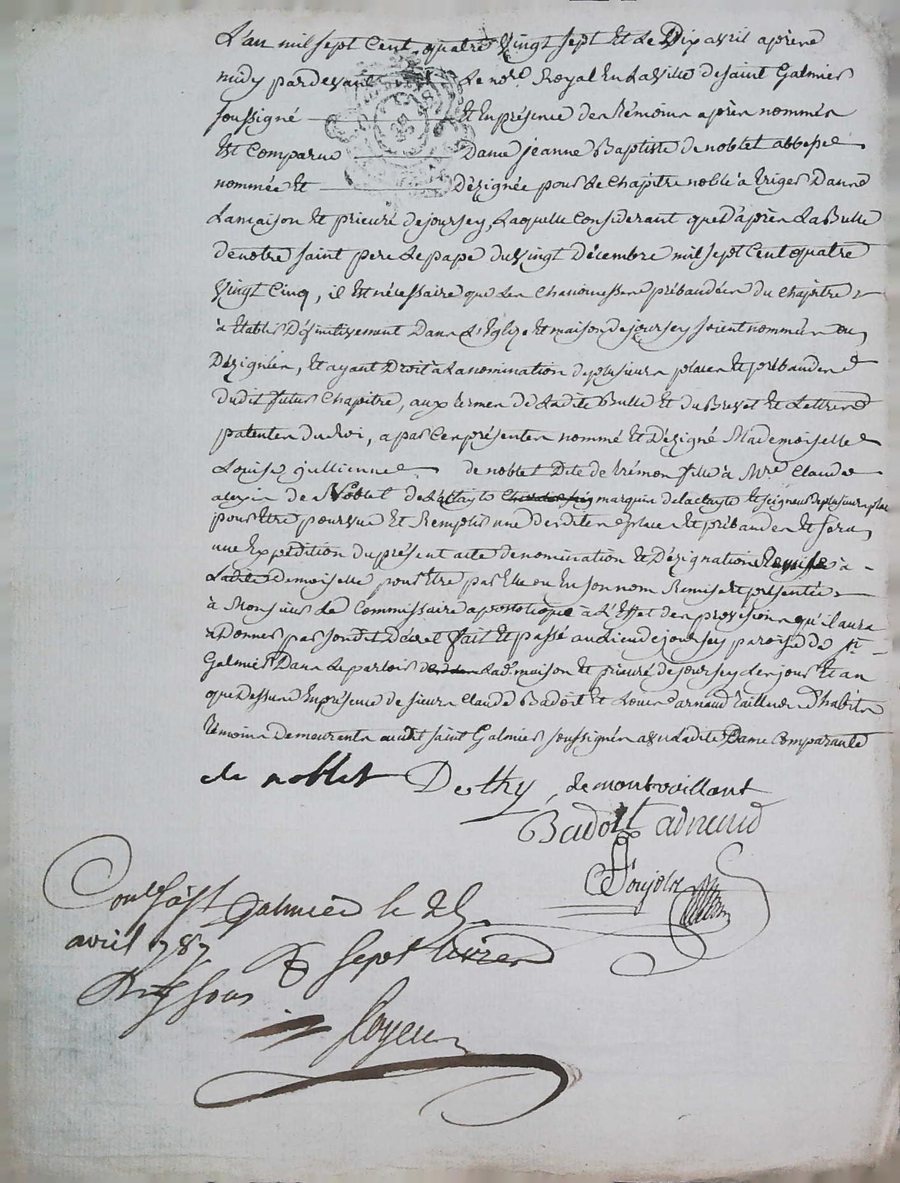 L'an mil sept Cent quatre Vingt sept Et Le Dix avril après
midy pardevant Le no.re Royal En La ville de saint Galmier
soussigné Et En présence des témoins après nommés
Est Comparue Dame jeanne Baptiste de noblet abbesse
nommée Et Dézignée pour Le Chapitre noble à Eriger Dans
La maison Et prieuré de joursey, Laquelle Considerant que d'après La Bulle
de notre saint pere Le pape du Vingt Décembre mil sept Cent quatre
Vingt Cinq, il Est nécessaire que Les Chanoinesses prébandées du Chapitre
à Etablir Définitivement Dans L'Eglize Et maison de joursey soient nommées ou
Dézignées, Et ayant Droit à La nomination de plusieurs places Et prébandes
dudit futur Chapitre, aux termes de Ladite Bulle Et du Brevet Et Lettres
patentes du Roi, a par Ces présentes nommé Et Dézigné Mademoiselle
Louise jullienne de noblet Dite de trémon fille à Mre Claude
alexis de Noblet marquis de la clayte Et seigneur de plusieurs places
pour Etre pourvue Et Remplir une desdites places Et prébandes Et sera
une Expédition du présent acte de nomination Et Dézignation Remise à
Ladite demoiselle pour Etre par Elle ou En son nom Remise Et présentée
à Monsieur Le Commissaire apostolique à L'Effet des provisions qu'il aura
à Donner par son dit décret fait Et passé au Lieu de joursey paroisse de St
Galmier Dans Le parloir Lad.e maison Et prieuré de joursey Les jour Et an
que Dessus En présence de sieurs Claude Badoit Et Louis arnaud tailleur D'habits
témoins demeurants audit saint Galmier soussignés avec Ladite Dame Comparante
de noblet Dethy, de montvaillant
Badoit arnaud
Poujols
Coullé à St Galmier le 25
avril 1787 sept livres
Dix sous